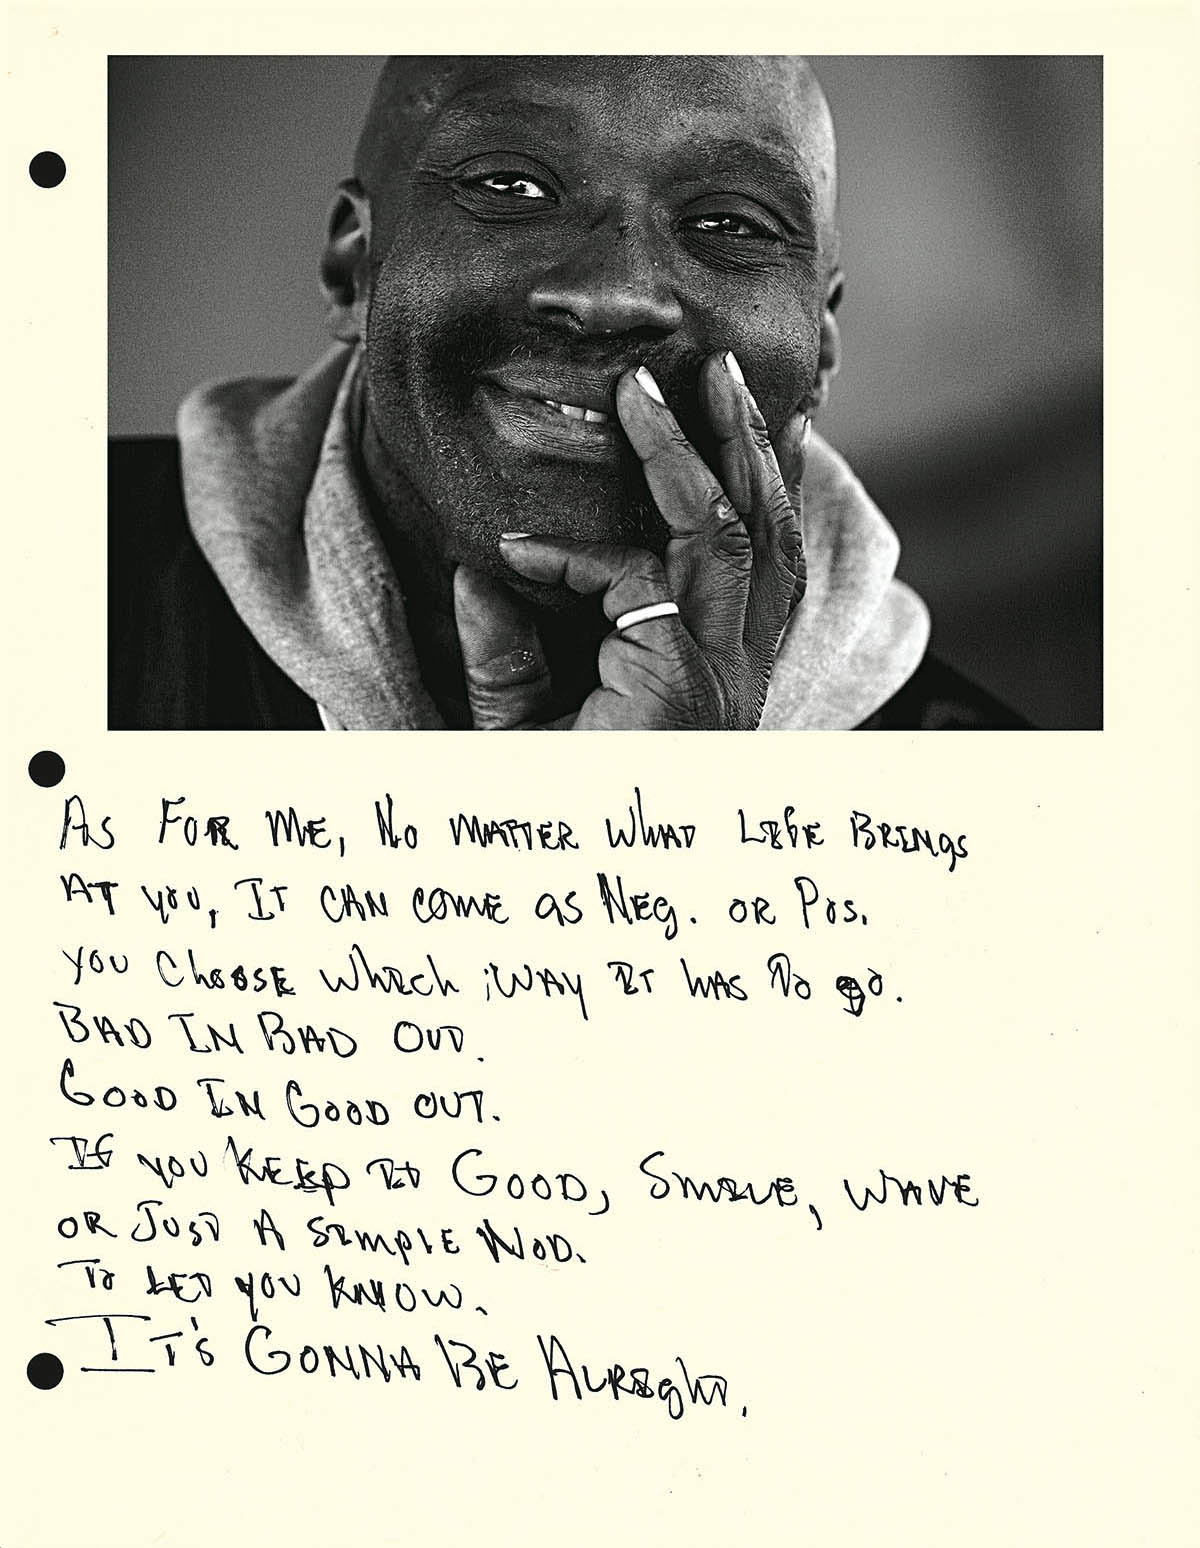 As FOR ME, No MATTER WHAT LIfE BRINgs
AT you, IT CAN COME as NEg. OR Pos.
you ChooSE which WAY IT has To go.
BAD IN BAD OUT.
GOOD IN GOOD OUT.
If you KEEp IT GOOD, SMILE, WAVE
OR JUST A SIMPlE NOD.
To LET you KNOW.
IT's GONNA BE ALRIghT.